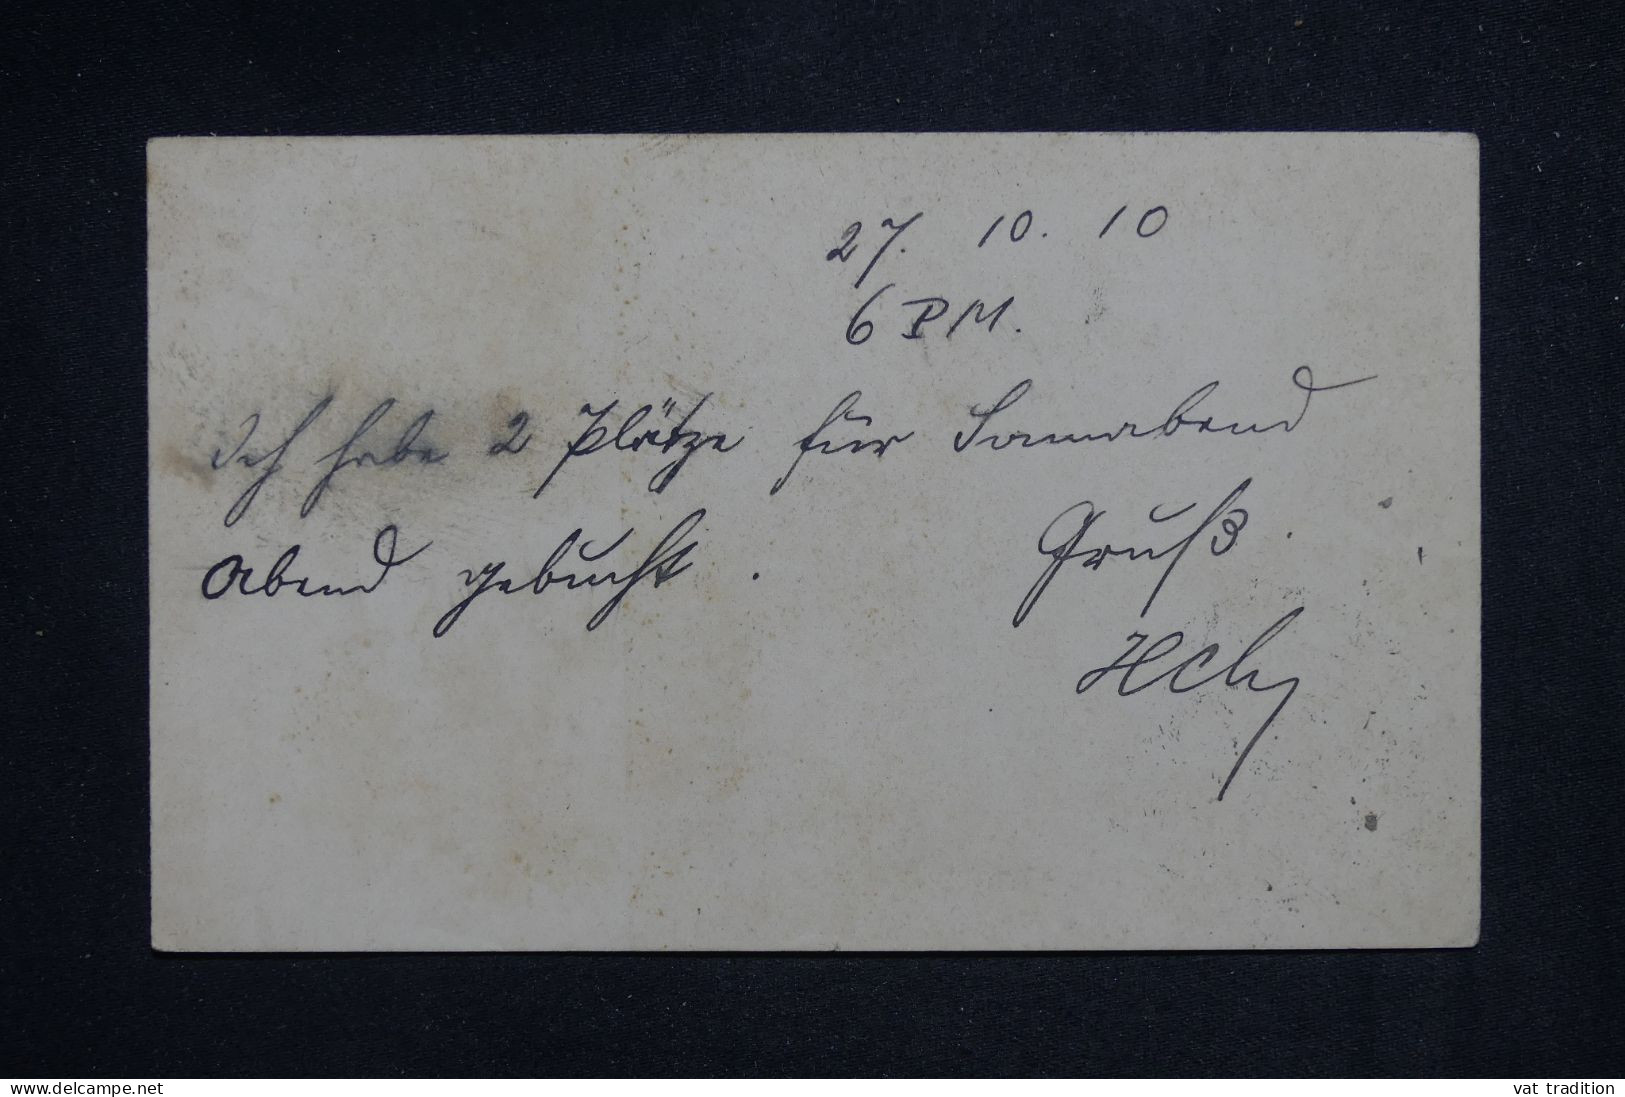 27. 10. 10
6 PM.
Ich habe 2 Plätze für Sonnabend
Abend gebucht.
Gruß.
www.delcampe.net
vat tradition